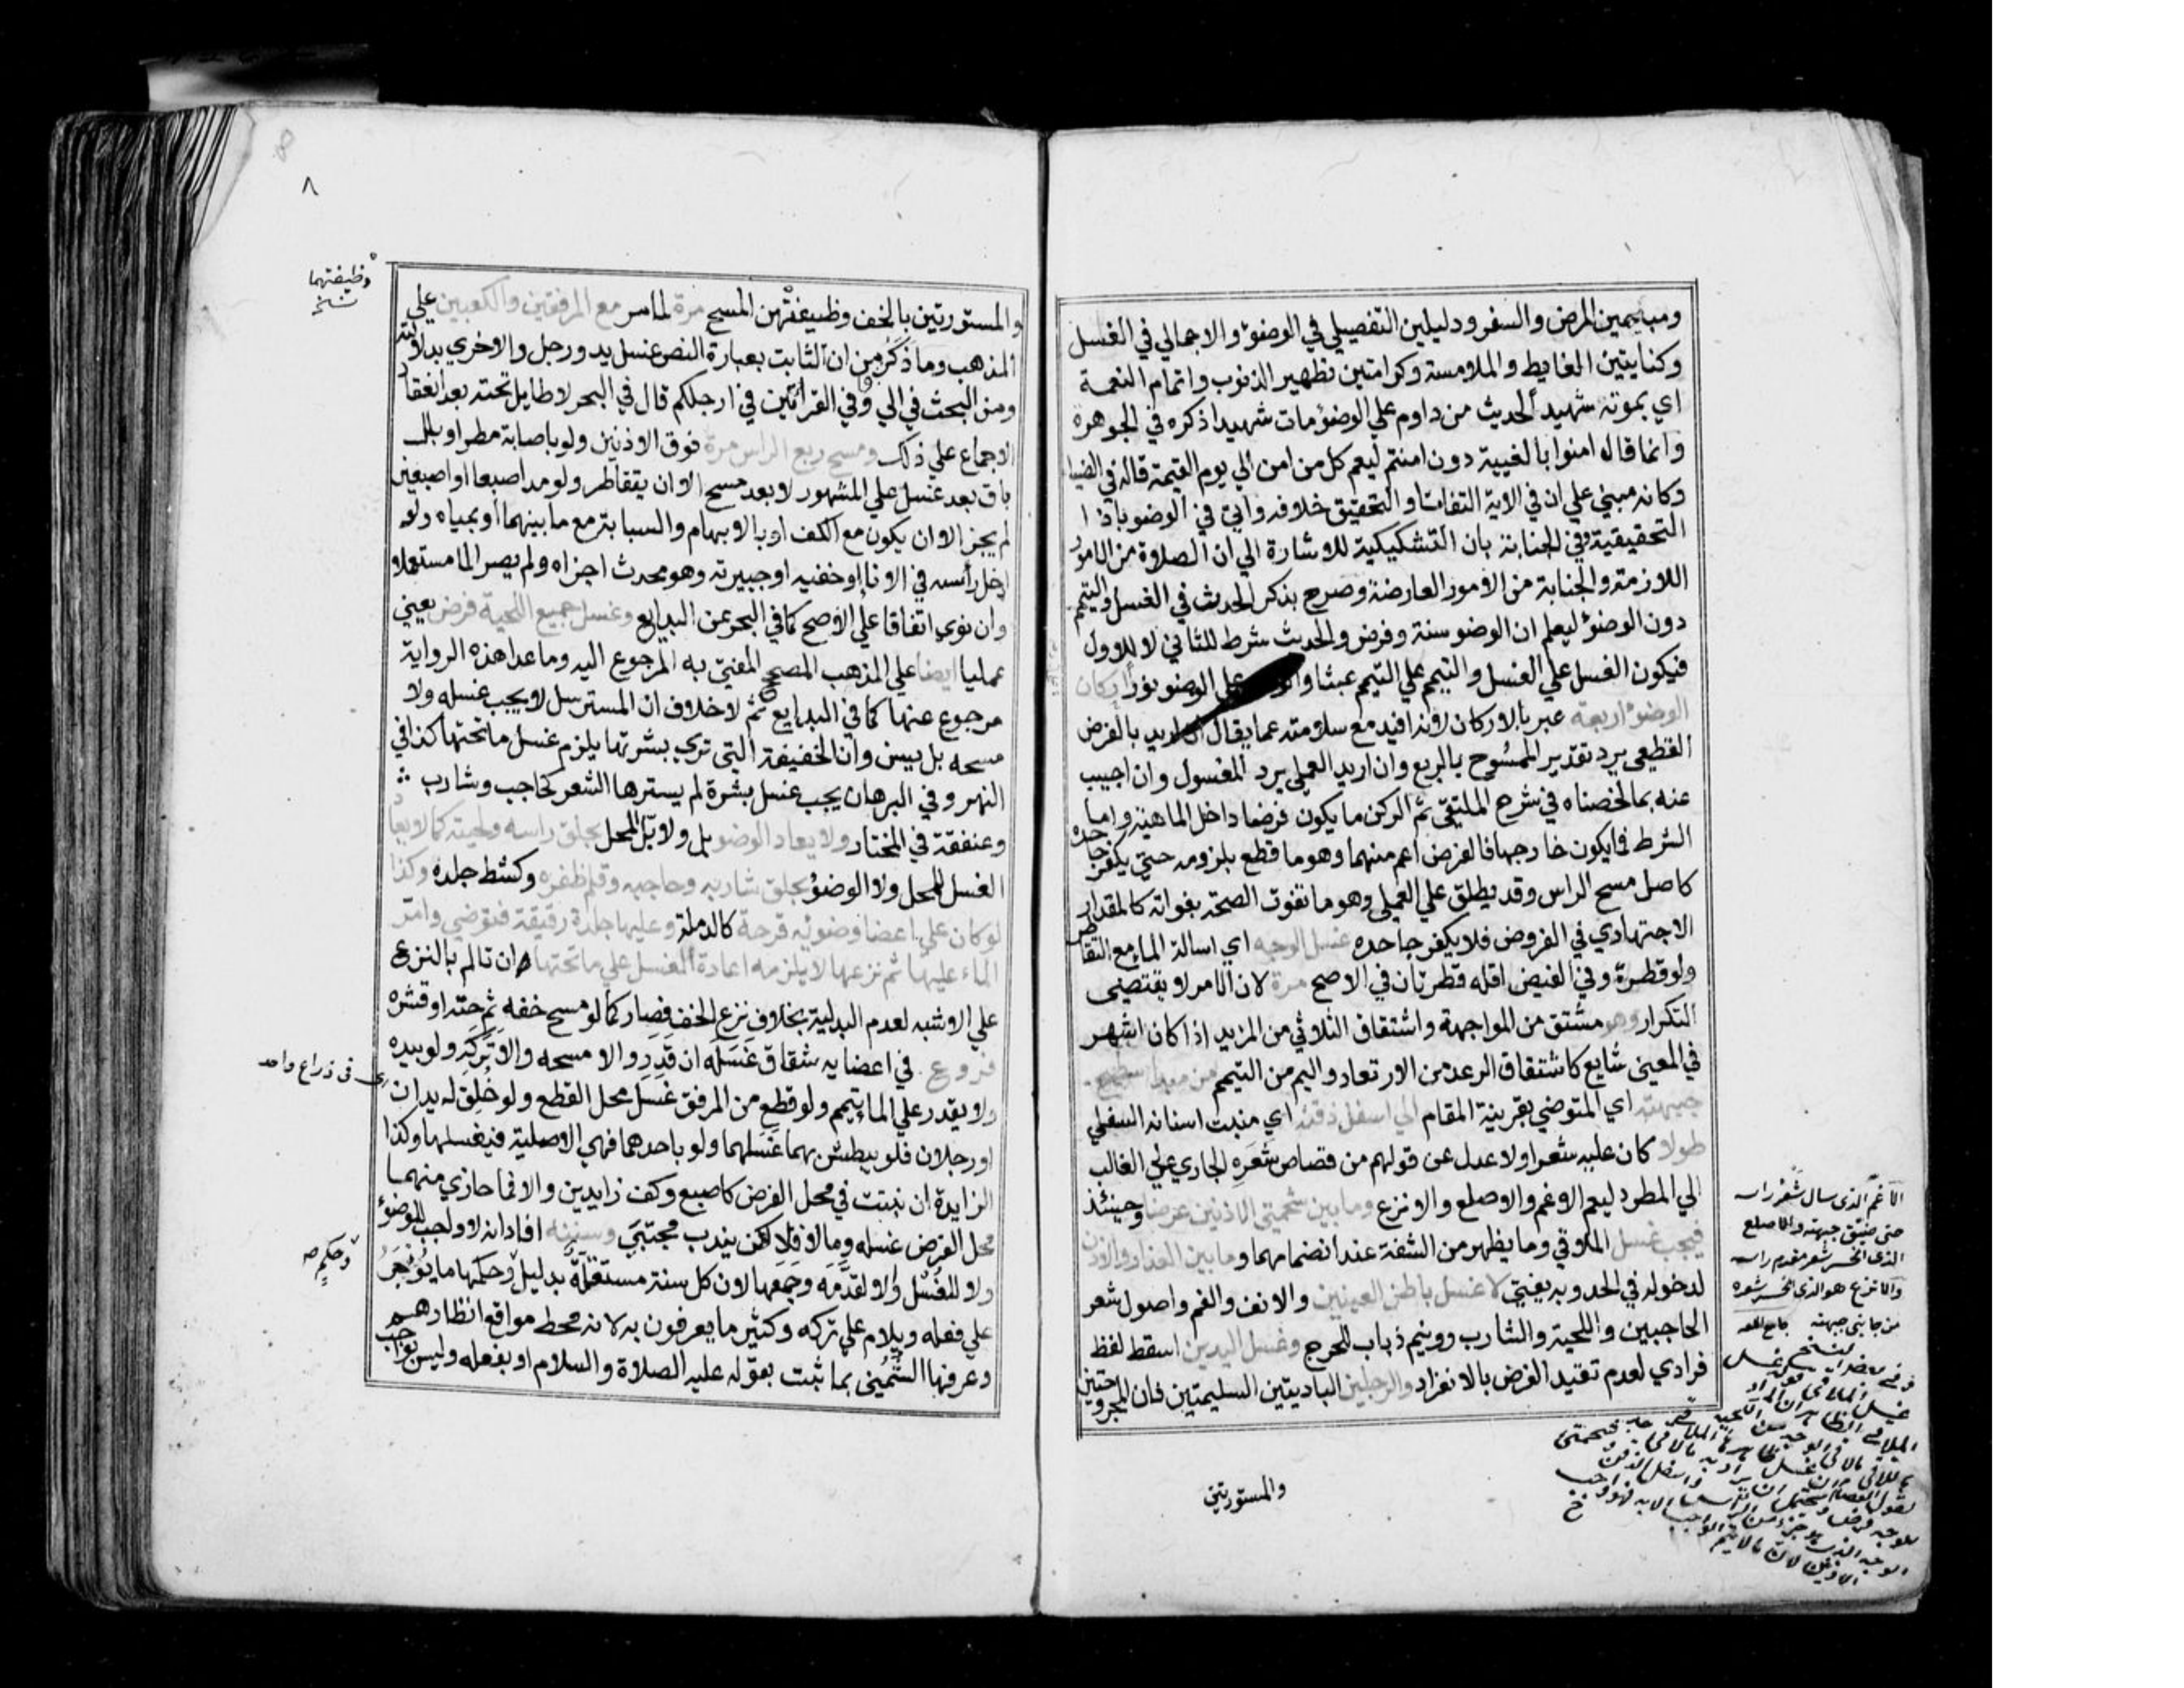 ومبيحين المرض والسفر ودليلين التفصيلي في الوضوء والاجمالي في الغسل
وكنايتين الغايط والملامسة وكرامتين تطهير الذنوب واتمام النعمة
اي بموته شهيدا لحديث من داوم علي الوضوء مات شهيدا ذكره في الجوهرة
وانما قال امنوا بالغيبة دون امنتم ليعم كل من امن الي يوم القيمة قاله في الضيا
وكانه مبني علي ان في الاية التفاتا والتحقيق خلافه واتي في الوضو باذا
التحقيقية وفي الجنابة بان التشكيكية للاشارة الي ان الصلاة من الامور
اللازمة والجنابة من الامور العارضة وصرح بذكر الحدث في الغسل والتيمم
دون الوضوء ليعلم ان الوضو سنة وفرض والحدث شرط للثاني لا للاول
فيكون الغسل علي الغسل والتيمم علي التيمم عبثا علي الوضو نور اركان
الوضوء اربعة عبر بالاركان لانه افيد مع سلامته عما يقال ان اريد بالفرض
القطعي يرد تقدير الممسوح بالربع وان اريد العملي يرد المغسول وان اجيب
عنه بما لخصناه في شرح الملتقي ثم الركن ما يكون فرضا داخل الماهية واما
الشرط فما يكون خارجها فالفرض اعم منهما وهو ما قطع بلزومه حتي يكفر جاحده
كاصل مسح الراس وقد يطلق علي العملي وهو ما تفوت الصحة بفواته كالمقدار
الاجتهادي في الفروض فلا يكفر جاحده غسل الوجه اي اسالة الماء مع التقاطر
ولو قطرة وفي الفيض اقله قطرتان في الاصح مرة لان الامر لا يقتضي
التكرار وهو مشتق من المواجهة واشتقاق الثلاثي من المزيد اذا كان اشهر
في المعني شايع كاشتقاق الرعد من الارتعاد واليم من التيمم من مبدا سطح
جبهته اي المتوضي بقرينة المقام الي اسفل ذقنه اي منبت اسنانه السفلي
طولا كان عليه شعر او لا عدل عن قولهم من قصاص شعره الجاري علي الغالب
الي المطرد ليعم الاغم والاصلع والانزع وما بين شحمتي الاذنين عرضا وحينئذ
فيجب غسل الملاقي وما يظهر من الشفة عند انضمامهما وما بين العذار والاذن
لدخوله في الحد وبه يفتي لا غسل باطن العينين والانف والفم واصول شعر
الحاجبين واللحية والشارب وونيم ذباب للحرج وغسل اليدين اسقط لفظ
فرادي لعدم تقييد الفرض بالانفراد والرجلين الباديتين السليمتين فان المجروحتين
والمستورتين
الاغم الذى سال شعر راسه
حتى ضيق جبهته والاصلع
الذى انحسر شعر مقدم راسه
والانزع هو الذى انحسر شعره
من جانبى جبهته
٨
والمستورتين بالخف وظيفتهن المسح مرة لما مر مع المرفقين والكعبين علي
المذهب وما ذكر من ان الثابت بعبارة النص غسل يد ورجل والاخري بدلالته
ومن البحث في الي وفي القراتين في ارجلكم قال في البحر لا طايل تحته بعد انعقاد
الاجماع علي ذلك ومسح ربع الراس مرة فوق الاذنين ولو باصابة مطر او بلل
باق بعد غسل علي المشهور لا بعد مسح الا ان يتقاطر ولو مد اصبعا او اصبعين
لم يجز الا ان يكون مع الكف او بالابهام والسبابة مع ما بينهما او بمياه ولو
ادخل راسه في الانا او خفيه او جبيرته وهو محدث اجزاه ولم يصر الما مستعملا
وان نوي اتفاقا علي الاصح كما في البحر عن البدايع وغسل جميع اللحية فرض يعني
عمليا ايضا علي المذهب المصحح المفتي به المرجوع اليه وما عدا هذه الرواية
مرجوع عنها كما في البدايع ثم لا خلاف ان المسترسل لا يجب غسله ولا
مسحه بل يسن وان الخفيفة التي تري بشرتها يلزم غسل ما تحتها كذا في
النهر وفي البرهان يجب غسل بشرة لم يسترها الشعر كحاجب وشارب
وعنفقة في المختار ولا يعاد الوضو بل ولا بل المحل بحلق راسه ولحيته كما لا يعاد
الغسل للمحل ولا الوضوء بحلق شاربه وحاجبه وقلم ظفره وكشط جلده وكذا
لو كان علي اعضا وضوئه قرحة كالدملة وعليها جلدة رقيقة فتوضي وامر
الماء عليها ثم نزعها لا يلزمه اعادة الغسل علي ما تحتها وان تالم بالنزع
علي الاشبه لعدم البدلية بخلاف نزع الخف فصار كما لو مسح خفه ثم حته او قشره
فروع في اعضايه شقاق غسله ان قدر والا مسحه والا تركه ولو بيده
ولا يقدر علي الما يتيمم ولو قطع من المرفق غسل محل القطع ولو خلق له يدان
او رجلان فلو يبطش بهما غسلهما ولو باحدهما فهي الاصلية فيغسلها وكذا
الزايدة ان نبتت في محل الفرض كاصبع وكف زايدين والا فما حاذي منهما
محل الفرض غسله وما لا فلا لكن يندب مجتبي وسننه افاد انه لا واجب للوضوء
ولا للغسل والا لقدمه وجمعها لان كل سنة مستقلة بدليل وحكمها ما يؤجر
علي فعله ويلام علي تركه وكثير ما يعرفون به لانه محط مواقع انظارهم
وعرفها الشمني بما ثبت بقوله عليه الصلاة والسلام او بفعله وليس بواجب
وظيفتهما
نسخ
فى ذراع واحد
وحكم